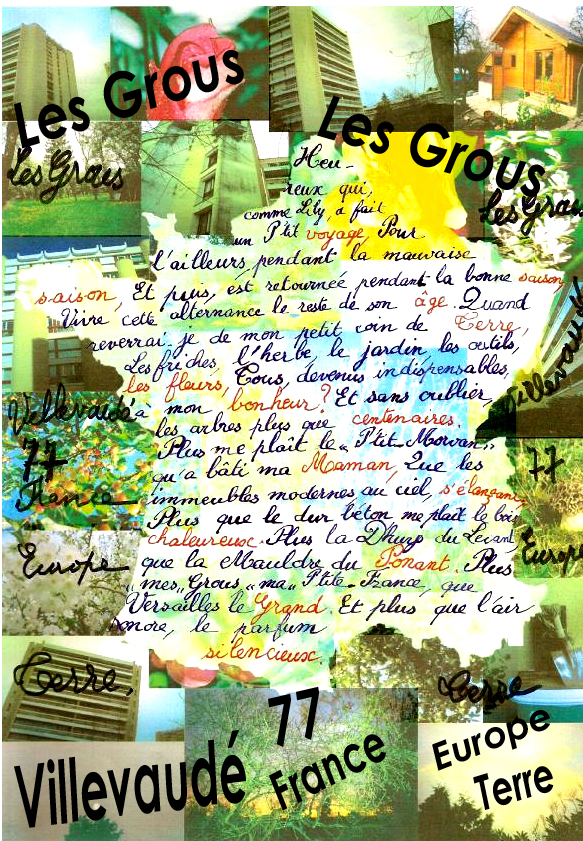 Les Grous
Les Grous
Les Grous
Les Grous
Heu-
reux qui,
comme Lily, a fait
un P'tit voyage, Pour
l'ailleurs, pendant la mauvaise
saison, Et puis, est retournée pendant la bonne saison
Vivre cette alternance le reste de son âge. Quand
reverrai-je de mon petit coin de Terre,
Les friches, l'herbe, le jardin, les outils,
les fleurs, Tous, devenus indispensables,
à mon bonheur? Et sans oublier,
les arbres plus que centenaires.
Plus me plaît le "P'tit-Morvan"
qu'a bâti ma Maman, Que les
immeubles modernes au ciel, s'élançant
Plus que le dur béton me plaît le bois
chaleureux. Plus la Dhuys du Levant,
que la Mauldre du Ponant. Plus
"mes" Grous, "ma" P'tite-France, que
Versailles le Grand. Et plus que l'air
sonore, le parfum
silencieux.
Villevaudé
77
France
Europe
Terre,
Villevaudé
77
Europe
Terre
Villevaudé
77
France
Europe
Terre